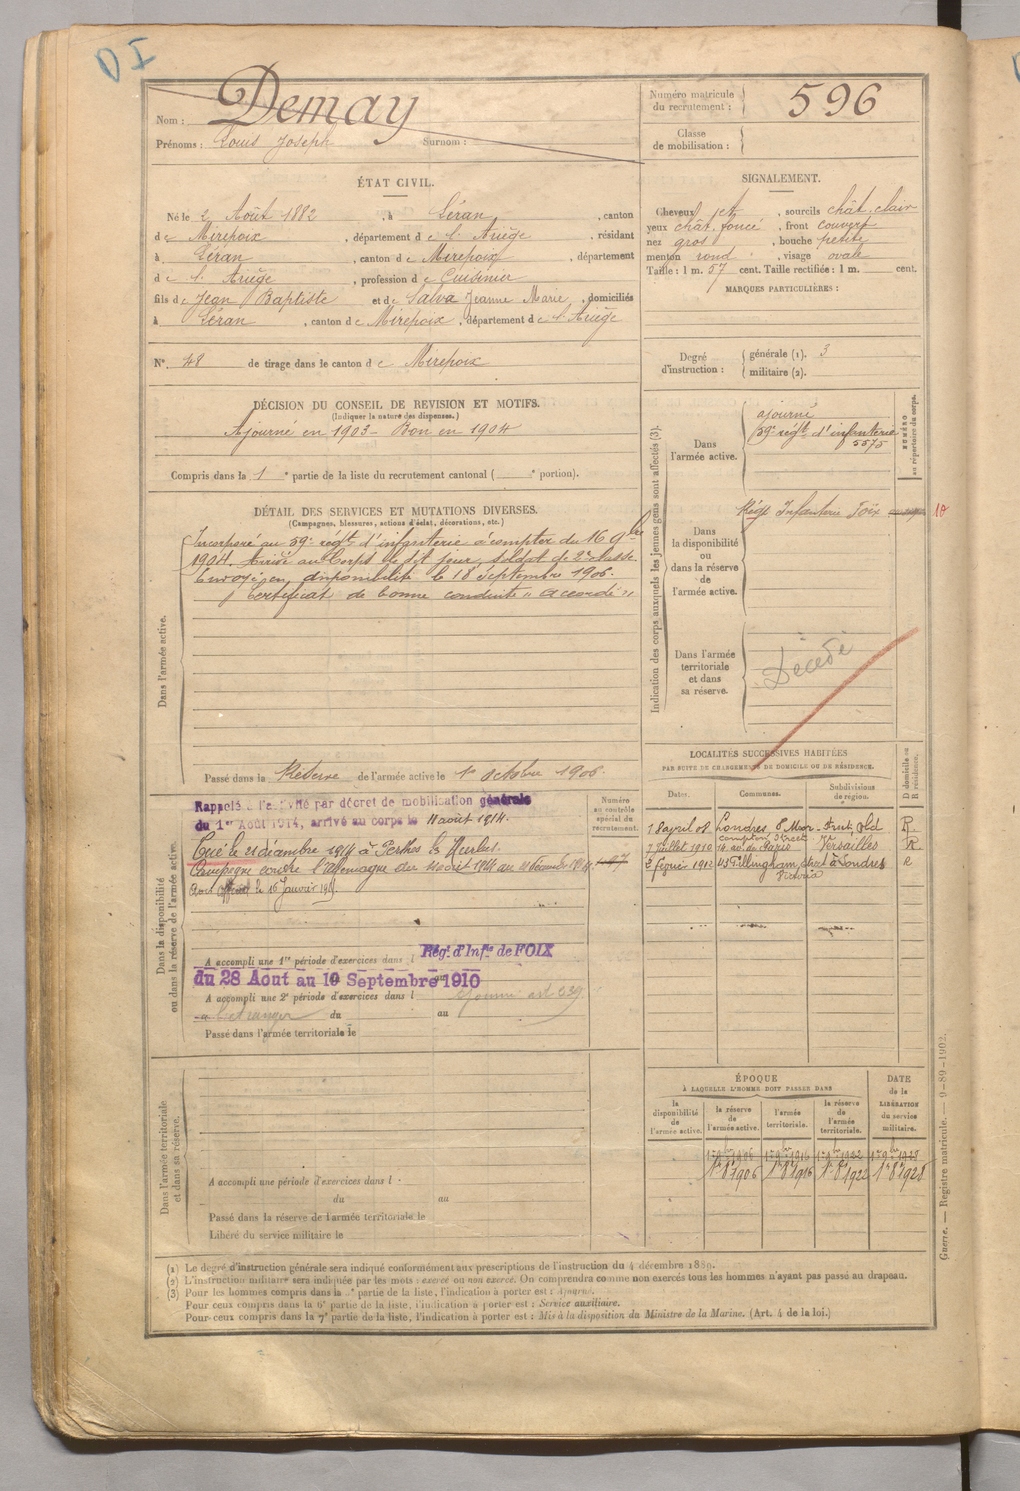 Nom : Demay
Prénoms : Louis Joseph Surnom :
Numéro matricule du recrutement : 596
Classe de mobilisation :
ÉTAT CIVIL.
Né le 2 Août 1882, à Léran, canton
de Mirepoix, département de l'Ariège, résidant
à Léran, canton de Mirepoix, département
de l'Ariège, profession de Cuisinier
fils de Jean Baptiste et de Salva Jeanne Marie, domiciliés
à Léran, canton de Mirepoix, département de l'Ariège
N° 48 de tirage dans le canton de Mirepoix
SIGNALEMENT.
Cheveux jet, sourcils chât. clair
yeux chât. foncé, front couvert
nez gros, bouche petite
menton rond, visage ovale
Taille : 1 m. 57 cent. Taille rectifiée : 1 m. cent.
MARQUES PARTICULIÈRES :
Degré d'instruction : générale (1). 3
militaire (2).
DÉCISION DU CONSEIL DE REVISION ET MOTIFS.
(Indiquer la nature des dispenses.)
Ajourné en 1903 - Bon en 1904
Compris dans la 1e partie de la liste du recrutement cantonal ( e portion).
DÉTAIL DES SERVICES ET MUTATIONS DIVERSES.
(Campagnes, blessures, actions d'éclat, décorations, etc.)
Dans l'armée active.
Incorporé au 59e régt d'infanterie à compter du 16 9bre
1904. Arrivé au Corps le dit jour, soldat de 2e classe.
Envoyé en disponibilité le 18 Septembre 1906.
Certificat de bonne conduite "Accordé"
Passé dans la Réserve de l'armée active le 1er octobre 1906.
Indication des corps auxquels les jeunes gens sont affectés (3).
NUMÉRO au répertoire du corps.
Dans l'armée active.
ajourné
59e régt d'infanterie
5575
Dans la disponibilité ou dans la réserve de l'armée active.
Régt Infanterie Foix
10
Dans l'armée territoriale et dans sa réserve.
Décédé
Dans la disponibilité ou dans la réserve de l'armée active.
Rappelé à l'activité par décret de mobilisation générale
du 1er Août 1914, arrivé au corps le 11 août 1914.
Tué le 21 décembre 1914 à Perthes les Hurlus.
Campagne contre l'Allemagne du 11 août 1914 au 21 décembre 1914
Avis officiel le 16 Janvier 1915.
Numéro au contrôle spécial du recrutement.
A accompli une 1re période d'exercices dans l Régt d'Infie de FOIX
du 28 Aout au 19 Septembre 1910
A accompli une 2e période d'exercices dans l
à l'étranger du au
Passé dans l'armée territoriale le
LOCALITÉS SUCCESSIVES HABITÉES
PAR SUITE DE CHANGEMENTS DE DOMICILE OU DE RÉSIDENCE.
Dates. Communes. Subdivisions de région. D domicile ou R résidence.
18 avril 08 Londres, 8 Moor Street, Old Compton Street R.
7 Juillet 1910 14 av. de Paris Versailles R.
2 février 1912 43 Gillingham street à Londres Victoria R
Dans l'armée territoriale et dans sa réserve.
A accompli une période d'exercices dans l
du au
Passé dans la réserve de l'armée territoriale le
Libéré du service militaire le
ÉPOQUE
À LAQUELLE L'HOMME DOIT PASSER DANS
la disponibilité de l'armée active.
la réserve de l'armée active.
l'armée territoriale.
la réserve de l'armée territoriale.
DATE de la LIBÉRATION du service militaire.
1er 9bre 1906 1er 9bre 1916 1er 9bre 1922 1er 9bre 1928
1er 8bre 1906 1er 8bre 1916 1er 8bre 1922 1er 8bre 1928
(1) Le degré d'instruction générale sera indiqué conformément aux prescriptions de l'instruction du 4 décembre 1889.
(2) L'instruction militaire sera indiquée par les mots : exercé ou non exercé. On comprendra comme non exercés tous les hommes n'ayant pas passé au drapeau.
(3) Pour les hommes compris dans la e partie de la liste, l'indication à porter est : Ajourné.
Pour ceux compris dans la 6e partie de la liste, l'indication à porter est : Service auxiliaire.
Pour ceux compris dans la 7e partie de la liste, l'indication à porter est : Mis à la disposition du Ministre de la Marine. (Art. 4 de la loi.)
Guerre. — Registre matricule. — 9-89-1902.